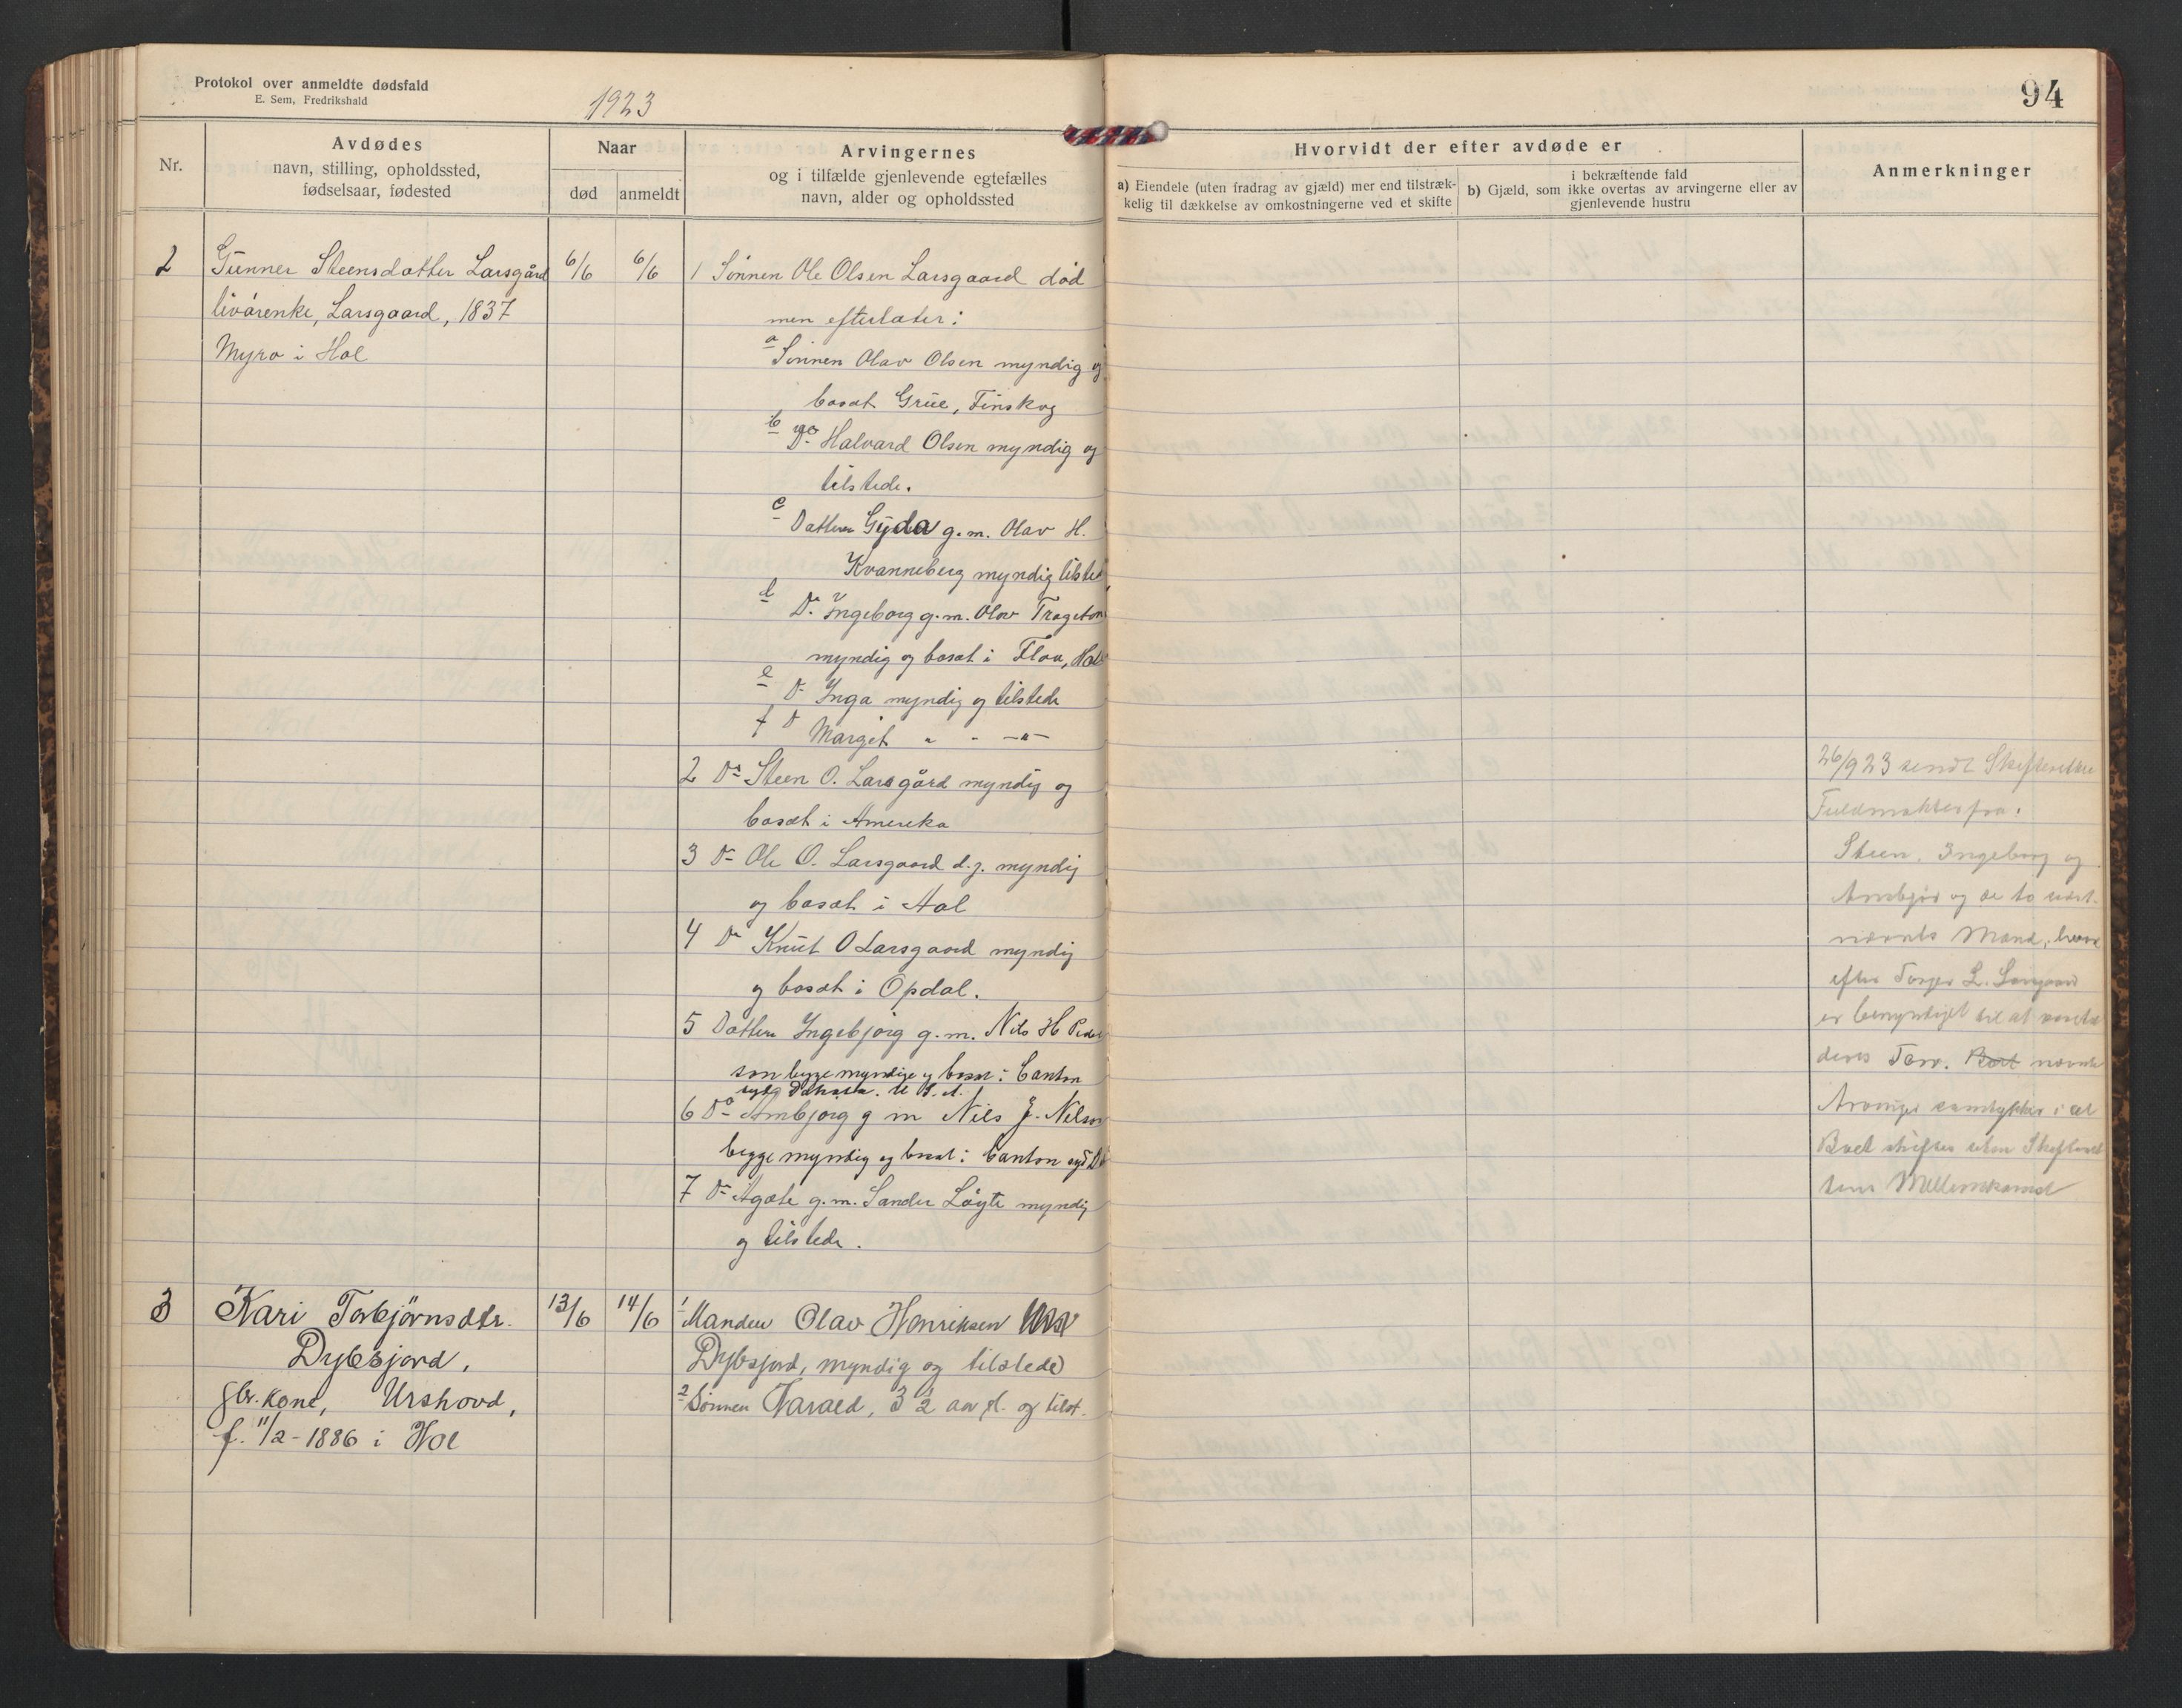 Protokol over anmeldte dødsfald
E. Sem, Fredrikshald
1923
94
Nr.
Avdødes
navn, stilling, opholdssted,
fødselsaar, fødested
Naar
død
anmeldt
Arvingernes
og i tilfælde gjenlevende egtefælles
navn, alder og opholdssted
Hvorvidt der efter avdøde er
a) Eiendele (uten fradrag av gjæld) mer end tilstræk-
kelig til dækkelse av omkostningerne ved et skifte
i bekræftende fald
b) Gjæld, som ikke overtas av arvingerne eller av
gjenlevende hustru
Anmerkninger
2
Gunner Steensdatter Larsgård
livørenke, Larsgaard, 1837
Myro i Hol
6/6
6/6
1 Sønnen Ole Olsen Larsgaard død
men efterlater:
a Sønnen Olav Olsen myndig og
bosat Grue, Finskog
b Do Halvard Olsen myndig og
tilstede.
c Datteren Gyda g.m. Olav H.
Kvanneberg myndig tilsted
d Do Ingeborg g.m. Olav Trageton
myndig og bosat i Flaa, Hal
e D Inga myndig og tilstede
f D Marget " - -"-
2 Do Steen O. Larsgård myndig og
bosat i Amerika
3 D Ole O. Larsgaard d.y. myndig
og bosat i Aal
4 D Knut O Larsgaard myndig
og bosat i Opdal.
5 Datteren Ingebjørg g.m. Nils H Peder
son begge myndige og bosat i Canton
syd Dakota. U.S.A.
6 Do Ambjørg g m Nils J. Nilson
begge myndig og bosat i Canton syd D
7 D Agate g.m. Sander Løgte myndig
og tilstede.
26/9 23 sendt Skifteretten
Fuldmakter fra.
Steen, Ingeborg og
Ambjør og de to sidst-
nævnts Mænd, hvor
efter L. Larsgaard
er bemyndiget til at vareta
deres Tarv. Bort nævnte
Arvinger samtykker i at
Boet skiftes uten Skifteret
tens Mellemkomst
3
Kari Torbjørnsdtr.
Dybsjord,
gbr. kone, Urshovd,
f. 11/2-1886 i Hol
13/6
14/6
1 Manden Olav Henriksen
Dybsjord, myndig og tilstede
2 Sønnen Harald, 3 1/2 aar gl. og tilst.